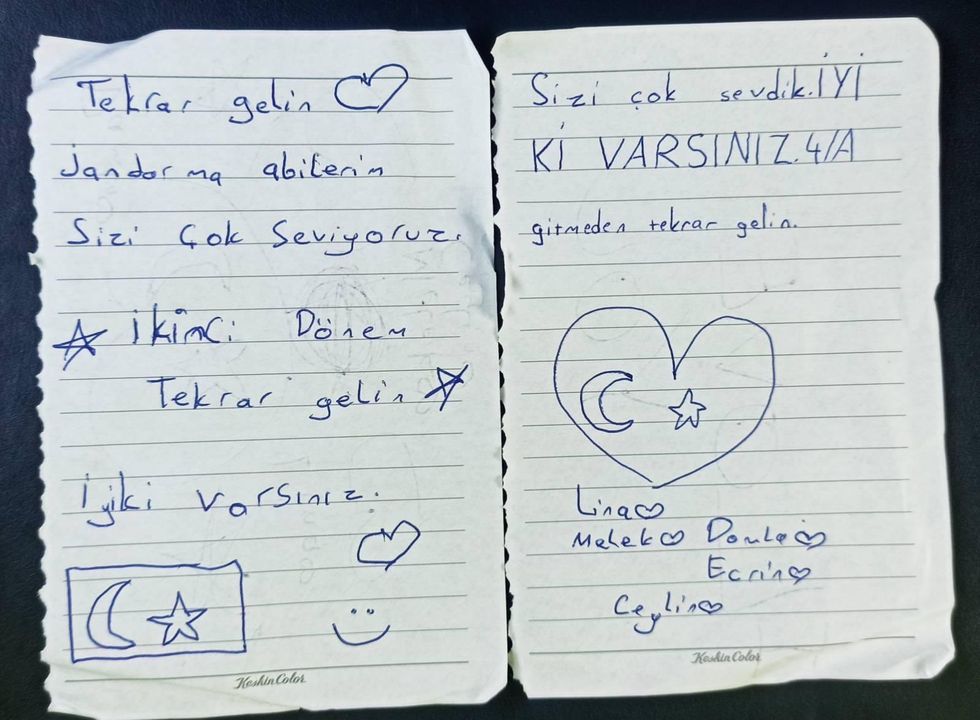 Tekrar gelin
Jandarma abilerim
Sizi Çok Seviyoruz.
İkinci Dönem
Tekrar gelin
İyiki varsınız.
KeskinColor
Sizi çok sevdik.İYİ
Kİ VARSINIZ.4/A
gitmeden tekrar gelin.
Lina
Melek Damla
Ecrin
Ceylin
KeskinColor